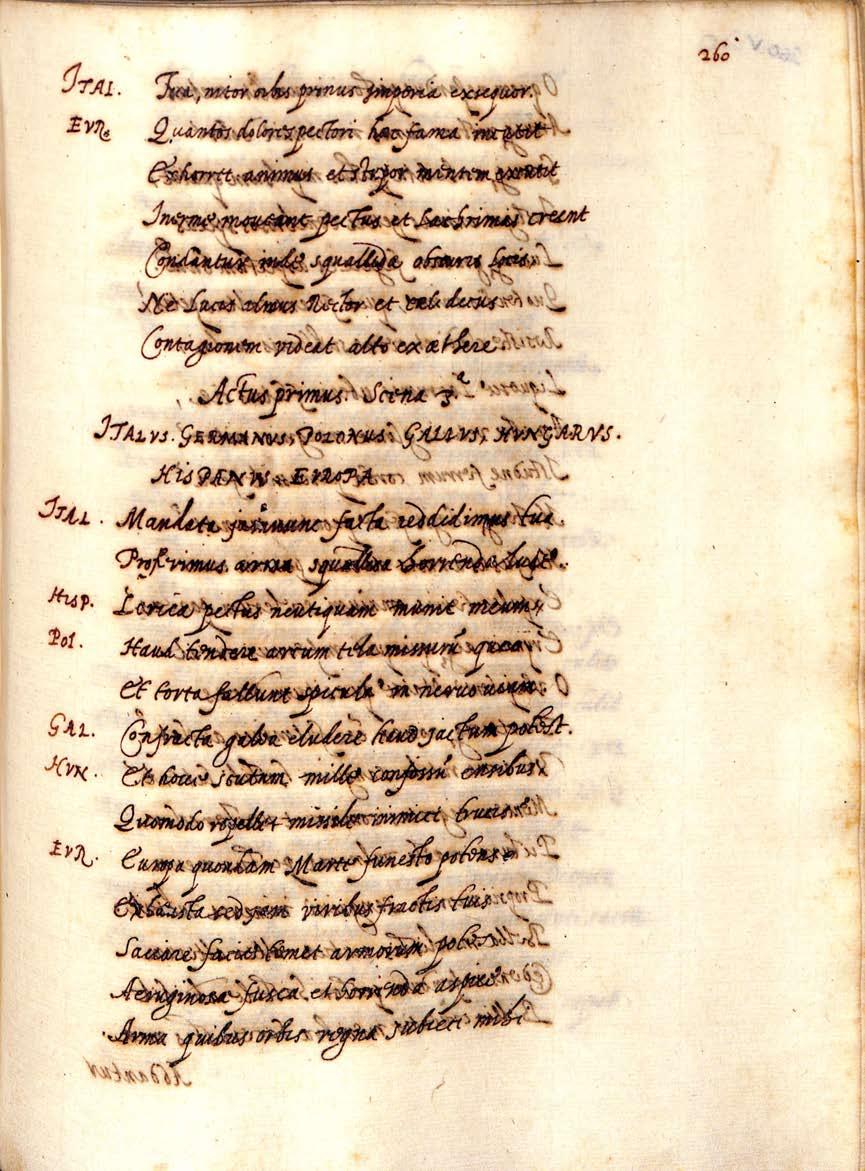 260
ITAL. Tua, nitor orbis primus imperia exsequor.
EVR. Quantos dolores pectori haec fama incutit
Exhorret animus et stupor mentem excutit
Inerme moveant pectus et lachrimas creent
Condantur inde squallida obscuris locis
Ne Lucis almus Rector et caeli decus
Contagionem videat alto ex aethere
Actus primus. Scena 3.a
ITALVS. GERMANVS. POLONUS. GALLVS, HVNGARVS.
HISPANVS. EVROPA
ITAL. Mandata iam nunc facta reddidimus tua
Proferimus arma squallida horrenda
HISP. Lorica pectus neutiquam munit meum
POL. Haud tendere arcum tela missurū queam
Et torta fallunt spicula in nervo
GAL. Confracta galea eludere haud jactum potest.
HVN. Et hocce scutum mille confossū ensibus
Quomodo repellet missile inimici trucis
EVR. Europa quondam Marte funesto potens
Exhausta sed jam viribus fractis tuis
facies temet armorum
Aeruginosa fusca et horrenda aspice
Arma quibus orbis regna subieci mihi